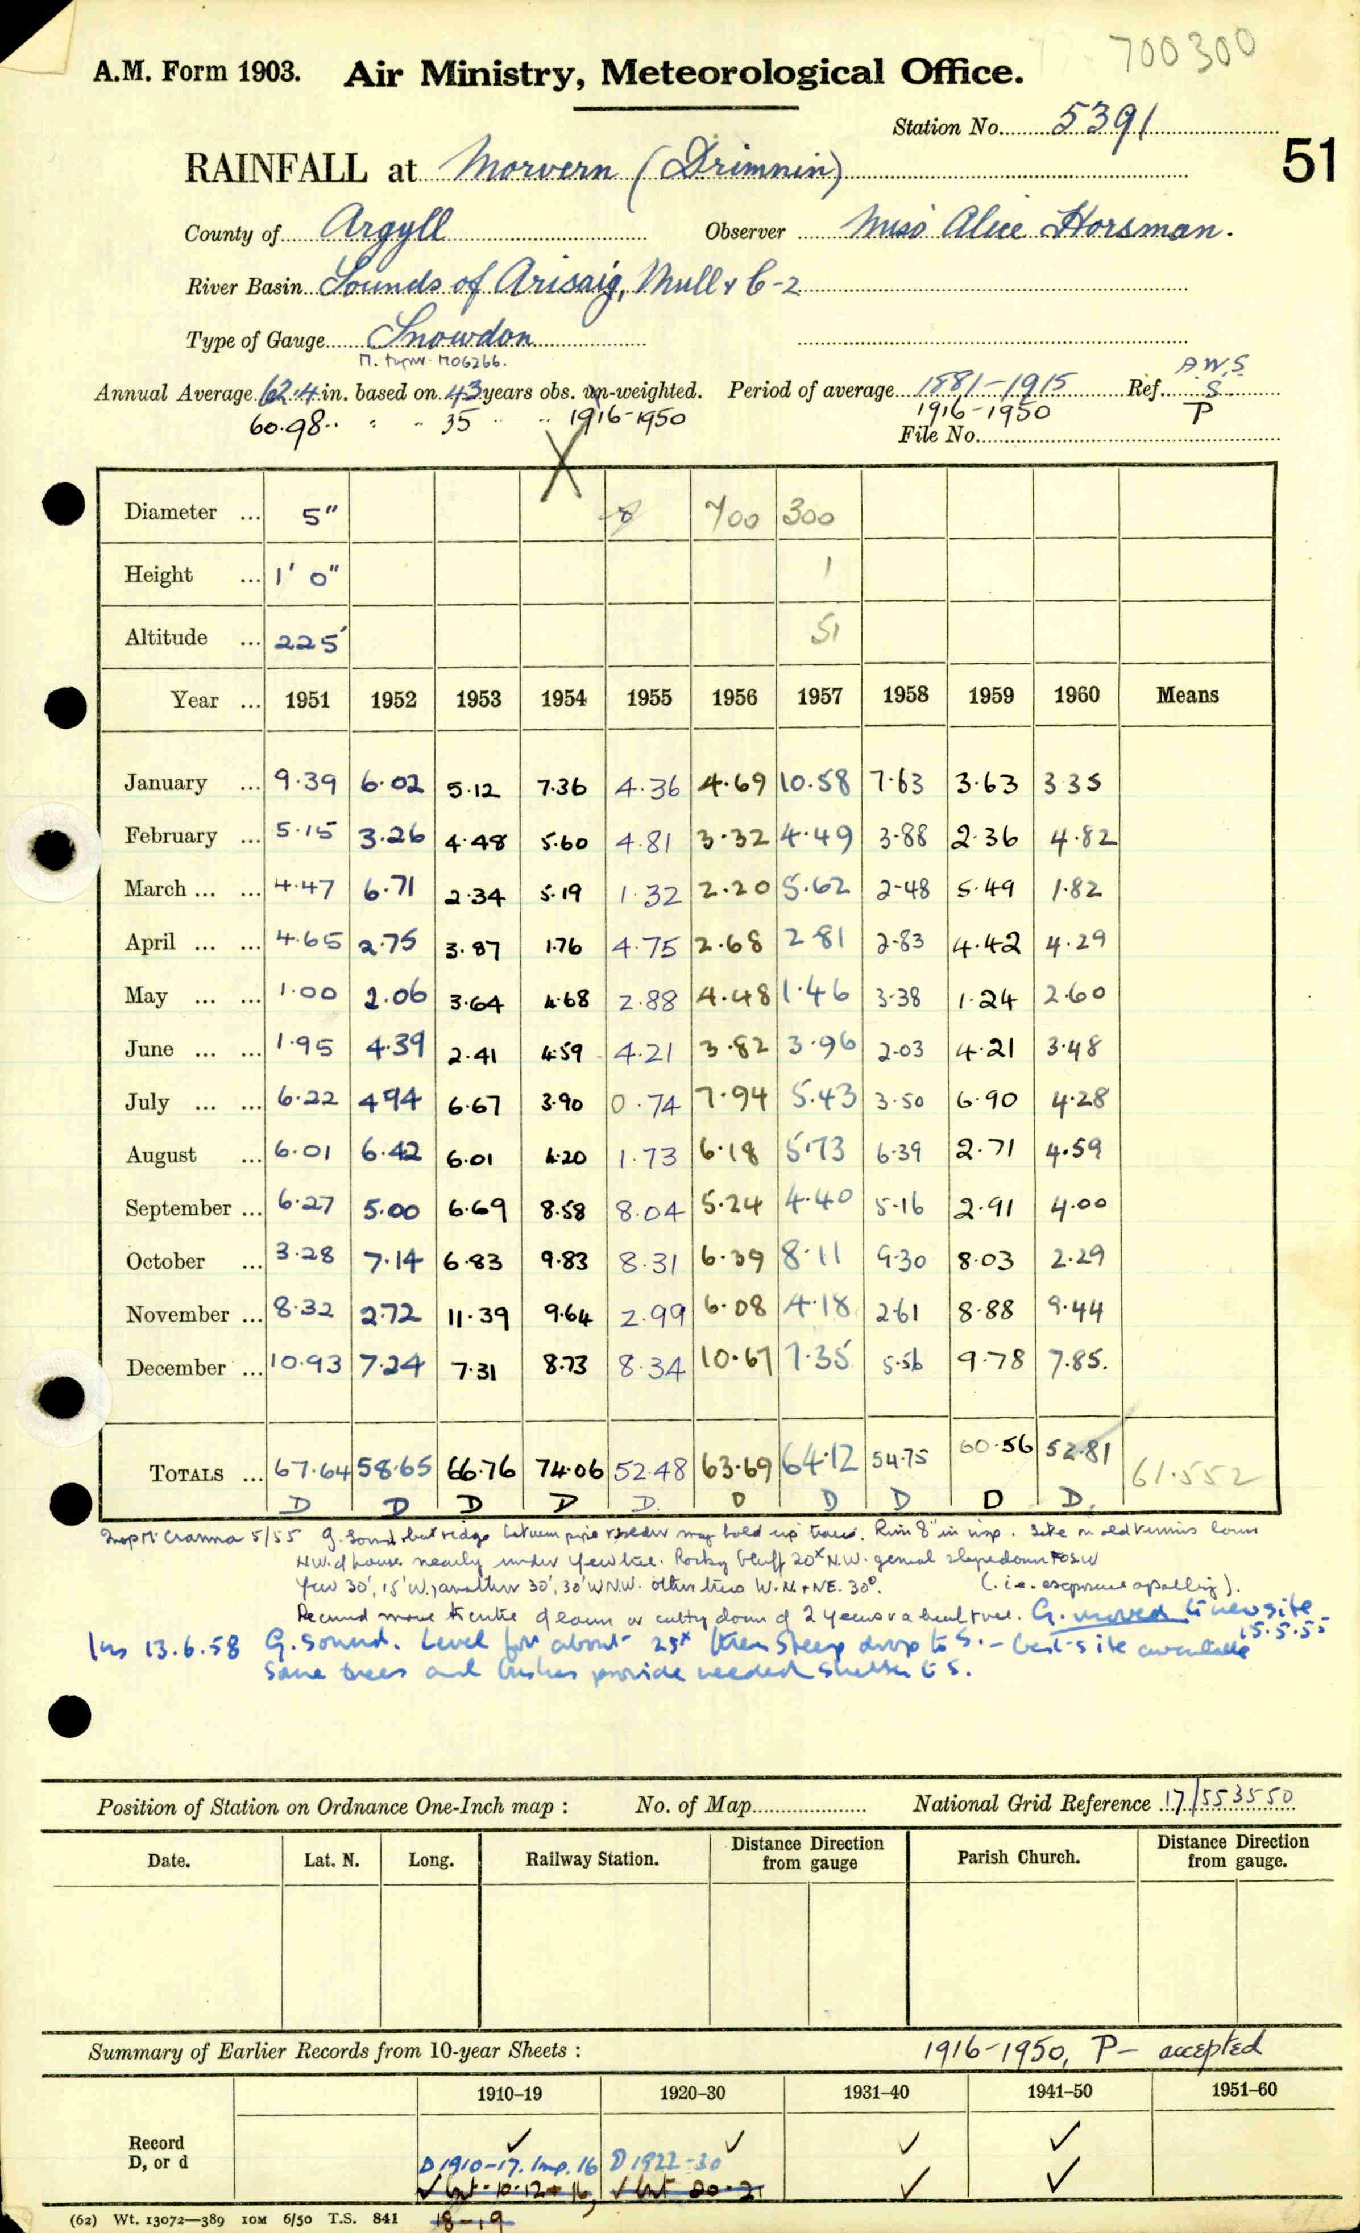 700300
A.M. Form 1903. Air Ministry, Meteorological Office.
Station No. 5391
51
RAINFALL at Morvern (Drimnin)
County of Argyll Observer Miss Alice Horsman.
River Basin Sounds of Arisaig, Mull & C-2
Type of Gauge Snowdon
M.O6266.
A.W.S.
Annual Average 62.4 in. based on 43 years obs. un-weighted. Period of average 1881-1915 Ref. S.
60.98 " " " 35 " " 1916-1950 1916-1950 P
File No.
Diameter ... 5" 8 700 300
Height ... 1' 0" 1
Altitude ... 225' 51
Year ... 1951 1952 1953 1954 1955 1956 1957 1958 1959 1960 Means
January ... 9.39 6.02 5.12 7.36 4.36 4.69 10.58 7.63 3.63 3.35
February ... 5.15 3.26 4.48 5.60 4.81 3.32 4.49 3.88 2.36 4.82
March ... ... 4.47 6.71 2.34 5.19 1.32 2.20 5.62 2.48 5.49 1.82
April ... ... 4.65 2.75 3.87 1.76 4.75 2.68 2.81 2.83 4.42 4.29
May ... ... 1.00 2.06 3.64 4.68 2.88 4.48 1.46 3.38 1.24 2.60
June ... ... 1.95 4.39 2.41 4.59 4.21 3.82 3.96 2.03 4.21 3.48
July ... ... 6.22 4.94 6.67 3.90 0.74 7.94 5.43 3.50 6.90 4.28
August ... 6.01 6.42 6.01 4.20 1.73 6.18 5.73 6.39 2.71 4.59
September ... 6.27 5.00 6.69 8.58 8.04 5.24 4.40 5.16 2.91 4.00
October ... 3.28 7.14 6.83 9.83 8.31 6.39 8.11 9.30 8.03 2.29
November ... 8.32 2.72 11.39 9.64 2.99 6.08 4.18 2.61 8.88 9.44
December ... 10.93 7.24 7.31 8.73 8.34 10.67 7.35 5.56 9.78 7.85.
TOTALS ... 67.64 58.65 66.76 74.06 52.48 63.69 64.12 54.75 60.56 52.81 61.552
D D D D D. D D D D D.
Cranna 5/55 G. sound but ridge between pipe may hold up Rim 8" in insp. Site on old tennis lawn
N.W. of house nearly under yew tree. Rocky bluff 20x N.W. general slope down to SW
Yew 30', 15' W, another 30', 30' WNW. other trees W. N + NE. 30°. (i.e. exposure appalling).
Recmd move to centre of lawn or cutting down of 2 yews G. moved to new site
15.5.55
Ins 13.6.58 G. sound. Level for about 25x then steep drop to S. - best site available
Some trees and bushes provide needed shelter to S.
Position of Station on Ordnance One-Inch map : No. of Map National Grid Reference 17/553550
Date. Lat. N. Long. Railway Station. Distance Direction from gauge Parish Church. Distance Direction from gauge.
Summary of Earlier Records from 10-year Sheets : 1916-1950, P- accepted
1910–19 1920–30 1931–40 1941–50 1951–60
Record ✓ ✓ ✓ ✓
D, or d D 1910-17. Imp. 16 D 1922-30
✓ Int. 10.12 + 16, ✓ Int 20-21 ✓ ✓
18-19
(62) Wt. 13072—389 10M 6/50 T.S. 841